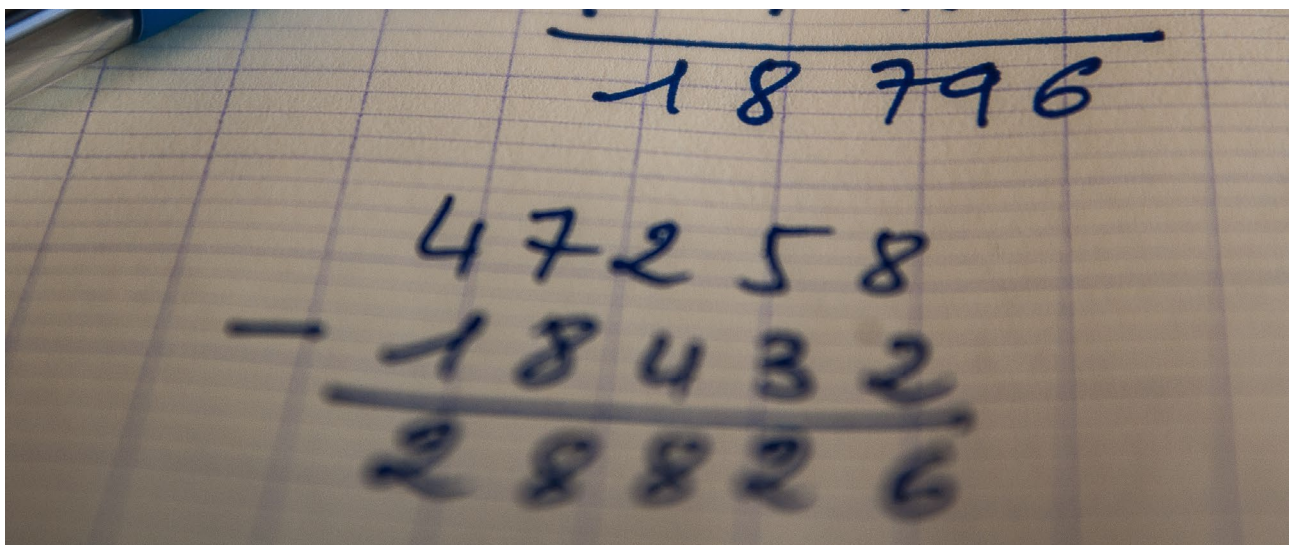 18 796
47258
- 18432
28826